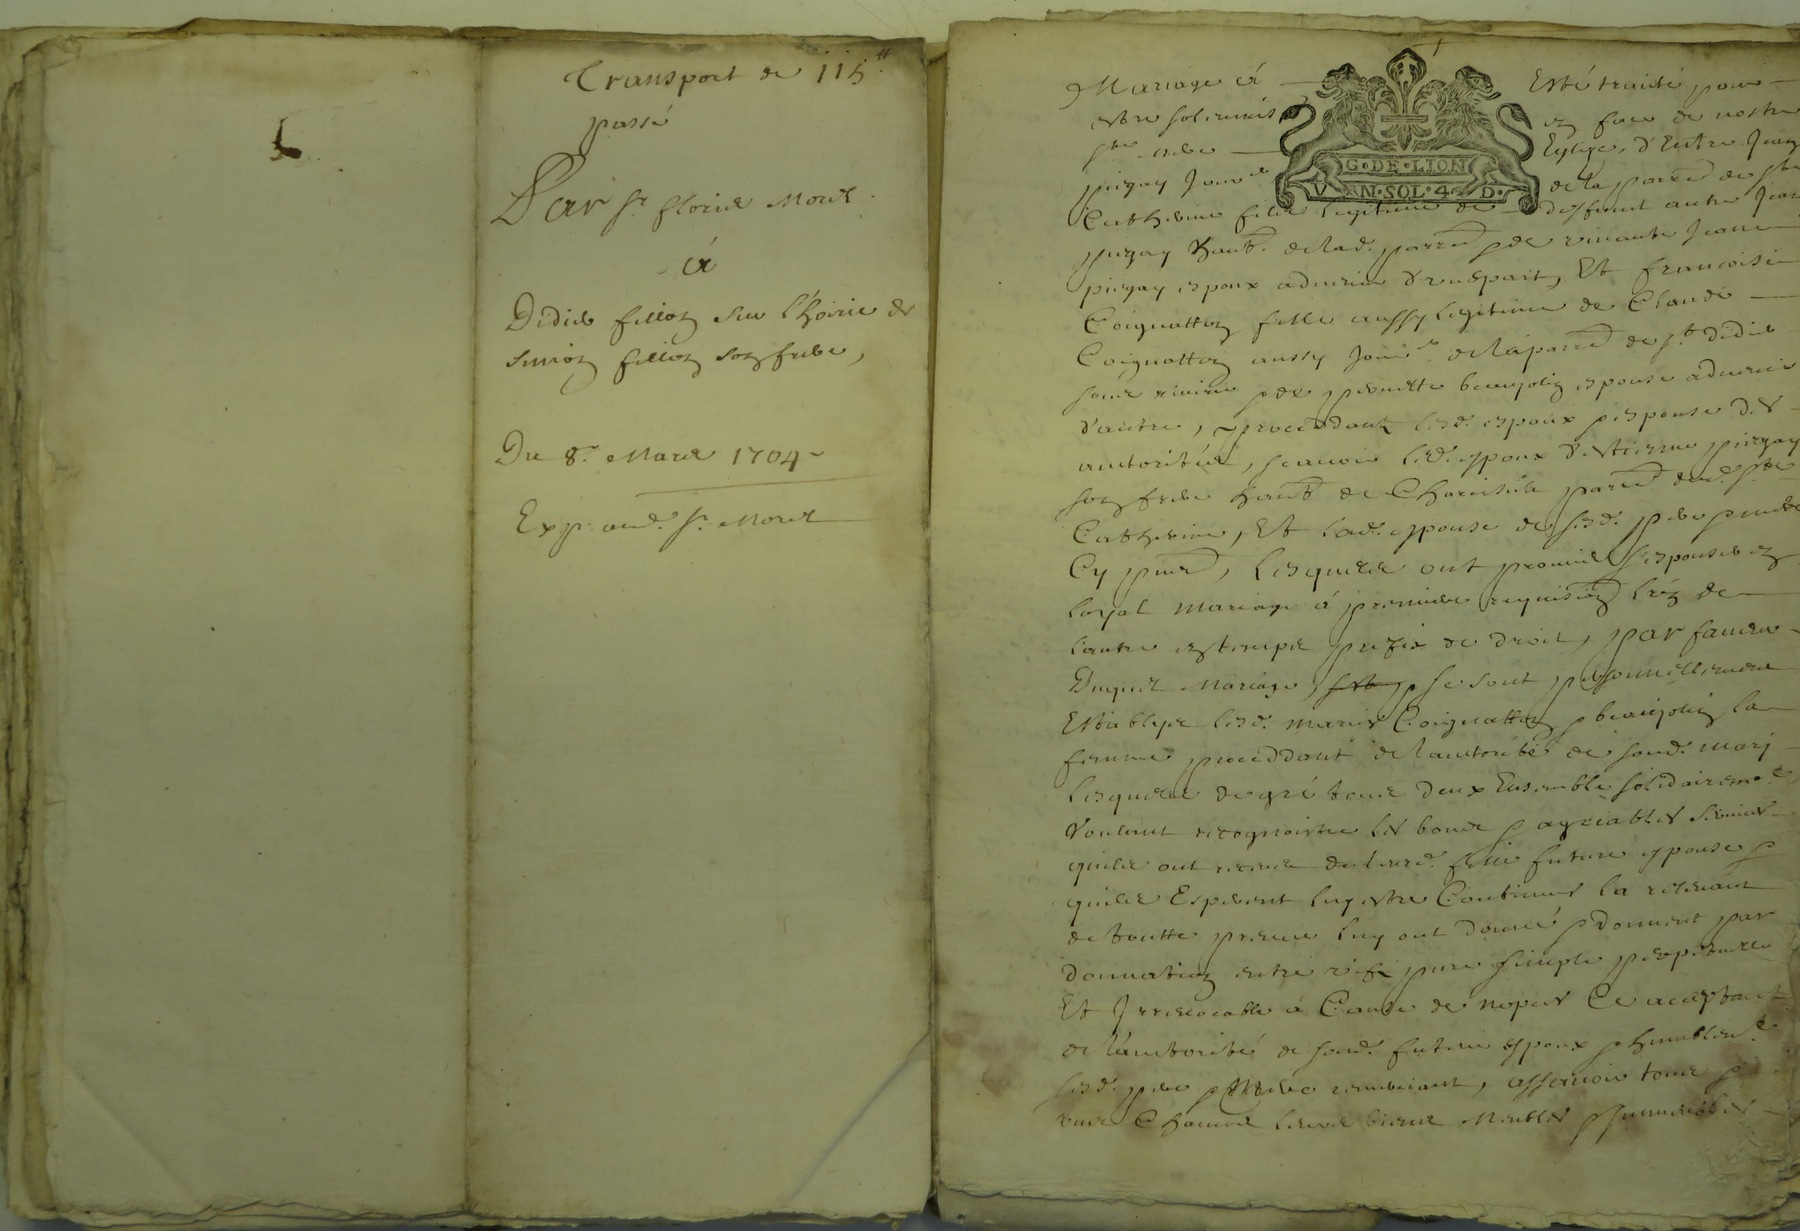 Transport de 115 ^tt
passé
Par s^r florid Morel
à
Didier fillon sur l'hoirie de
simon fillon son frere,
Du 8^e Mars 1704
Exp. aud. s^r Morel
Mariage à Esté traitté pour
estre solemnisé en face de nostre
s^te mere Eglise, d'Entre Jean
G·DE·LION
V N·SOL·4·D·
pizay de la parr^e de s^te
Catherine fils legitime de deffunt autre Jean
pizay hab^t. de lad. parr^e & de vivante Jeanne
pizay espoux advenir d'unepart, Et francoise
Coignatton fille aussy legitime de Claude
Coignatton aussy de laparr^e de s^t didier
sous riviere & de pernette beaujolin espouse advenir
d'autre, proceddant lesd. espoux & espouse des
autorités, scavoir led. espoux d'estienne pizay
son frere hab^t de parr^e dud. s^te
Catherine, Et lad. espouse de sesd. pere & mere
Cy , Lesquels ont promis s'espouser en
loyal mariage à premiere requisition l'un de
l'autre es temps prefix de droit, par faveur
Duquel Mariage, & se sont personnellement
Establys lesd. mariés Coignatton & beaujolin la
femme proceddant de l'autorité de sond. mary
lesquels de gré tous deux Ensemble solidairem^t
Voulant recognoistre les bons & agreables services
quils ont receus de leurd. fille future espouse &
quils Esperent luy estre Continués la rellevant
de toutte preuve luy ont donné & donnent par
donnation entre vifs pure simple perpetuelle
Et Irrevocable à Cause de nopces Ce acceptant
de l'autorité de sond. futur espoux & humblem^t
sesd. pere & mere remerciant, assavoir tous &
uns Chacuns leurs biens Meubles & Immeubles